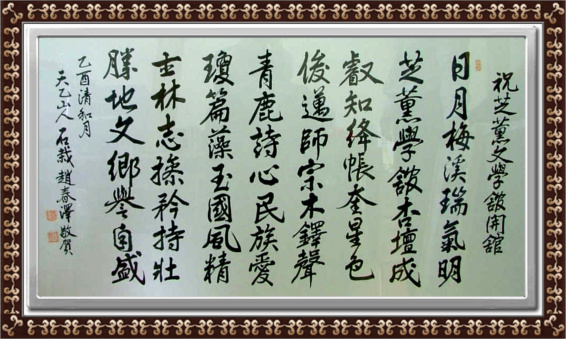 祝芝薰文學舘開舘
日月梅溪瑞氣明
芝薰學舘杏壇成
叡知絳帳奎星色
俊邁師宗木鐸聲
青鹿詩心民族愛
瓊篇藻玉國風精
士林志操矜持壯
勝地文鄉譽自盛
乙酉清和月
天乙山人 石 趙春澤 敬賀